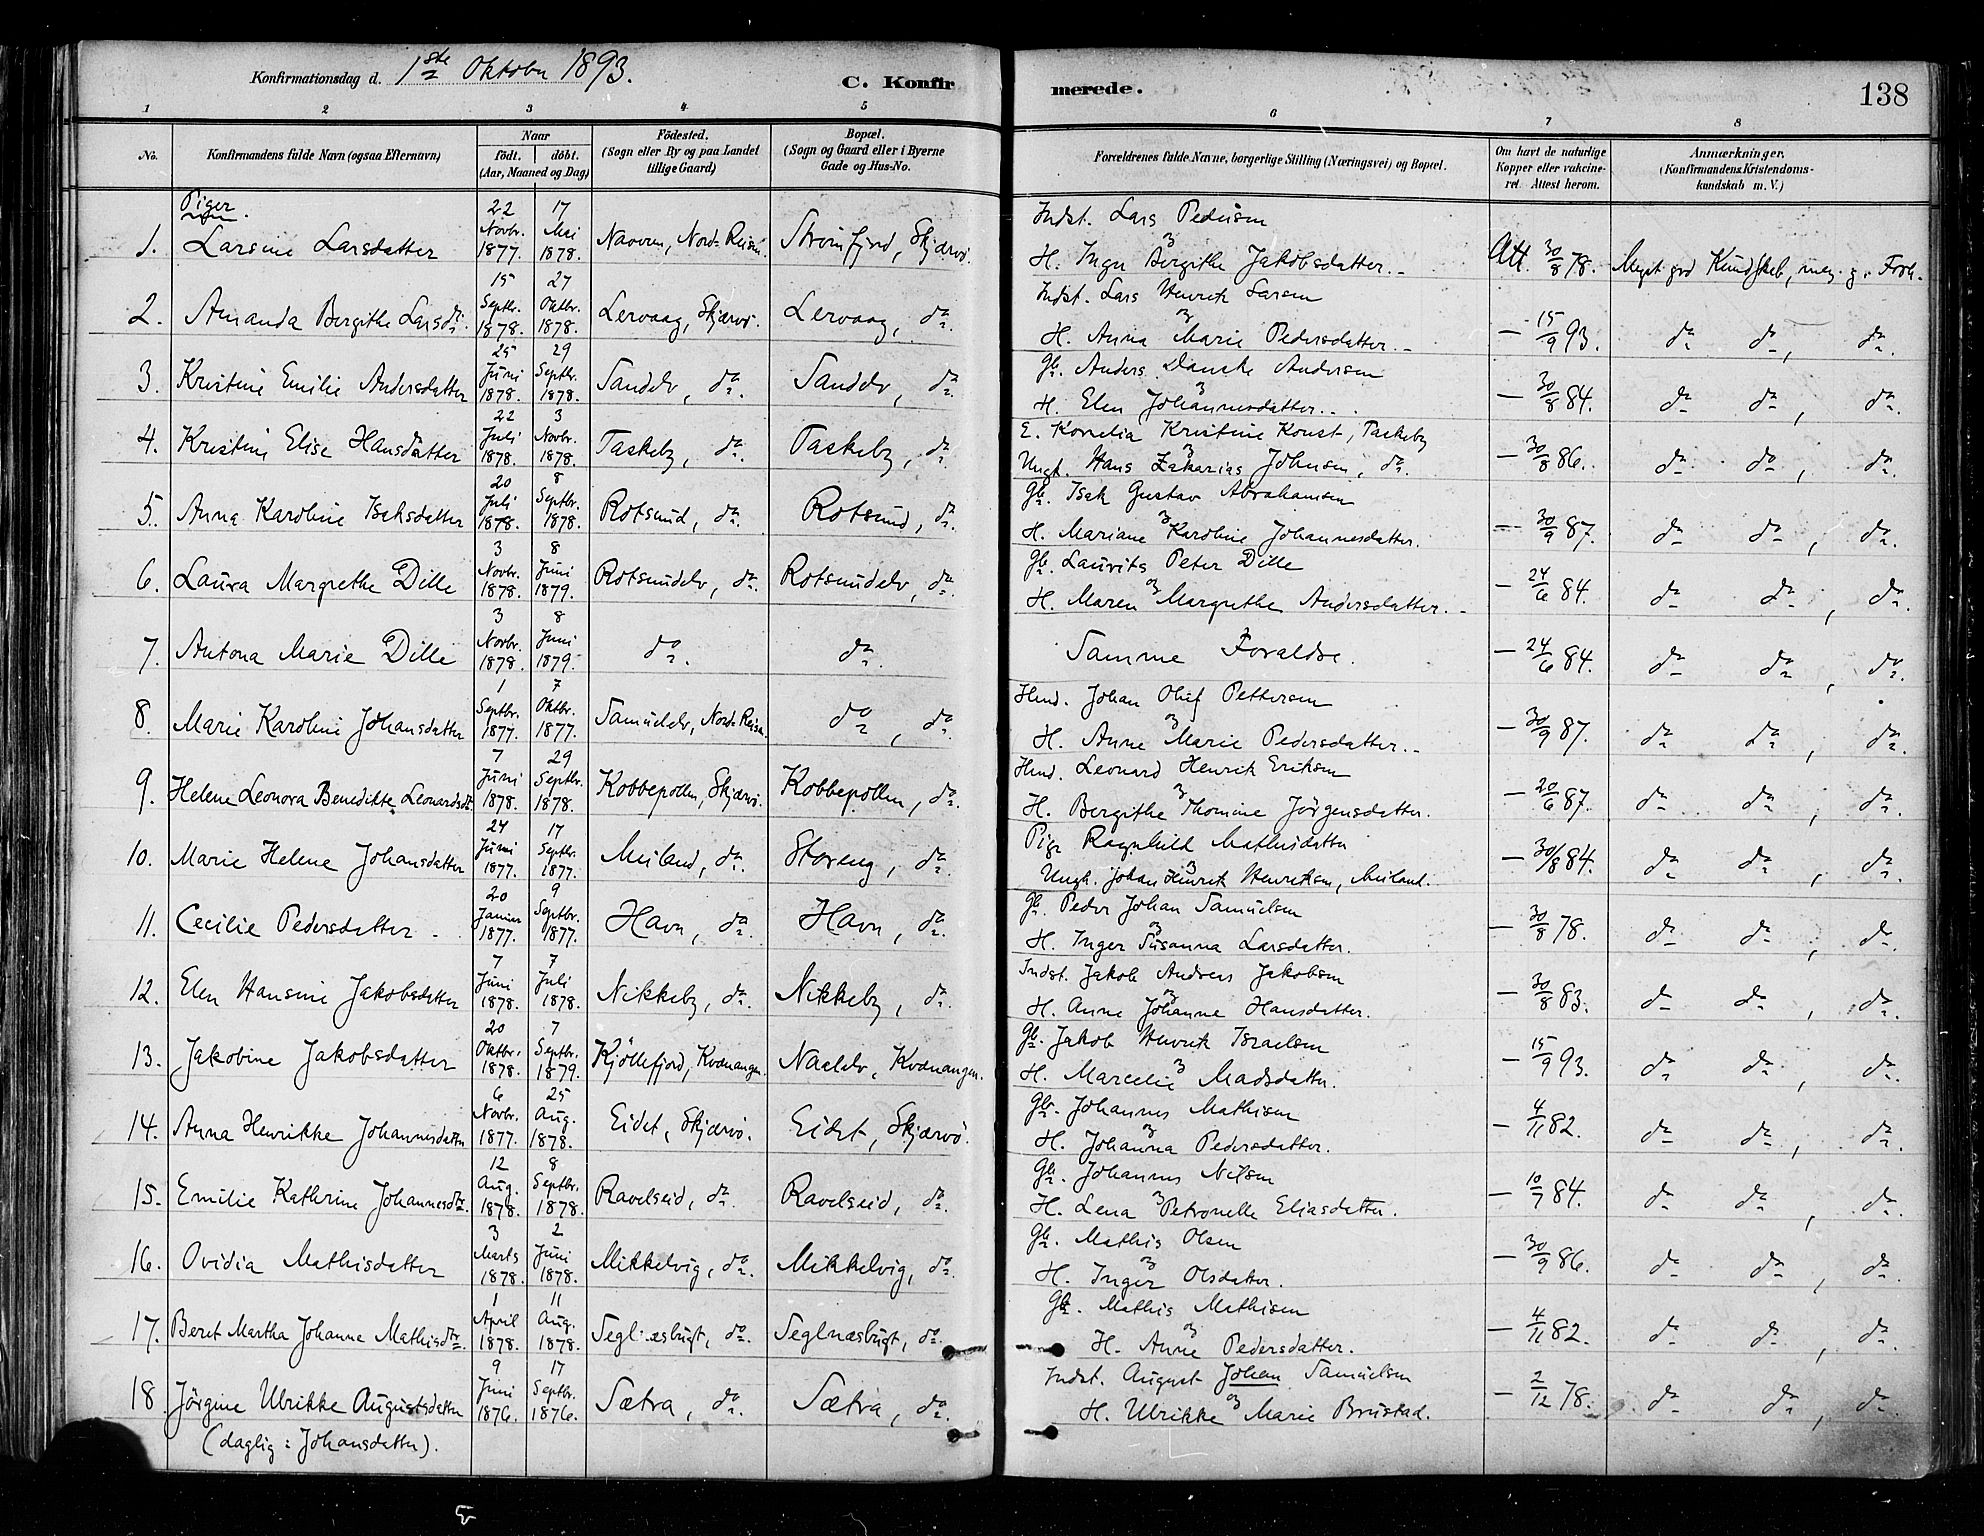 Konfirmationsdag d. 1ste Oktober 1893.
C. Konfirmerede.
138
1 2 3 4 5 6 7 8
No.
Konfirmandens fulde Navn (ogsaa Efternavn)
Naar født. døbt. (Aar, Maaned og Dag)
Fødested. (Sogn eller By og paa Landet tillige Gaard)
Bopæl. (Sogn og Gaard eller i Byerne Gade og Hus-No.
Forældrenes fulde Navne, borgerlige Stilling (Næringsvei) og Bopæl.
Om havt de naturlige Kopper eller vakcineret. Attest herom.
Anmærkninger. (Konfirmandens Kristendomskundskab m. V.)
Piger.
1. Larsine Larsdatter 22 Novbr. 1877. 17 Mai 1878. Navren, Nord-Reisen. Straumfjord, Skjærvö. Indst. Lars Pedersen og H. Inger Bergithe Jakobsdatter. Att. 30/8 78. Meget god Kundskab, meg. g. Forh.
2. Amanda Bergithe Larsdtr. 15 Septbr. 1878. 27 Oktbr. 1878. Lervaag, Skjærvö. Lervaag, do. Indst. Lars Henrik Larsen og H. Anna Marie Pedersdatter. – 15/9 93. do do, do.
3. Kristine Emilie Andersdatter 25 Juni 1878. 29 Septbr. 1878. Sandelv, do. Sandelv, do. Gb. Anders Danske Andersen og H. Elen Johannesdatter. – 30/8 84. do do, do.
4. Kristine Elise Hansdatter 22 Juli 1878. 3 Novbr. 1878. Taskeby, do. Taskeby, do. E. Kornelia Kristine Konst, Taskeby og Ungk. Hans Zakarias Johnsen, do. – 30/8 86. do do, do.
5. Anna Karoline Isaksdatter 20 Juli 1878. 8 Septbr. 1878. Rotsund, do. Rotsund, do. Gb. Isak Gustav Abrahamsen og H. Mariane Karoline Johannesdatter. – 30/9 87. do do, do.
6. Laura Margrethe Dille 3 Novbr. 1878. 8 Juni 1879. Rotsundelv, do. Rotsundelv, do. Gb. Laurits Peter Dille og H. Maren Margrethe Andersdatter. – 24/6 84. do do, do.
7. Antona Marie Dille 3 Novbr. 1878. 8 Juni 1879. do. do. Samme Foraldre. – 24/6 84. do do, do.
8. Marie Karoline Johansdatter 1 Septbr. 1877. 7 Oktbr. 1877. Samuelelv, Nord-Reisen. do, do. Hmd. Johan Oluf Pettersen og H. Anne Marie Pedersdatter. – 30/9 87. do do, do.
9. Helene Leonora Benedikte Leonardsdtr. 7 Juni 1878. 29 Septbr. 1878. Kobbepollen, Skjærvö. Kobbepollen, do. Hmd. Leonard Henrik Eriksen og H. Bergithe Thomine Jörgensdatter. – 20/6 87. do do, do.
10. Marie Helene Johansdatter 24 Juni 1877. 17 Septbr. 1877. Meiland, do. Storeng, do. Pige Ragnhild Mathisdatter og Ungk. Johan Hinrik Henriksen, Meiland. – 30/8 84. do do, do.
11. Cecilie Pedersdatter 20 Januar 1877. 9 Septbr. 1877. Havn, do. Havn, do. Gb. Peder Johan Samuelsen og H. Inger Susanna Larsdatter. – 30/8 78. do do, do.
12. Elen Hansine Jakobsdatter 7 Juni 1878. 7 Juli 1878. Nikkeby, do. Nikkeby, do. Indst. Jakob Andreas Jakobsen og H. Anne Johanne Hansdatter. – 30/8 83. do do, do.
13. Jakobine Jakobsdatter 20 Oktbr. 1878. 7 Septbr. 1879. Kjöllefjord, Kvænangen. Naelelv, Kvænangen. Gb. Jakob Henrik Israelsen og H. Marcelie Madsdatter. – 15/9 93. do do, do.
14. Anna Henrikke Johannesdatter 6 Novbr. 1877. 25 Aug. 1878. Eidet, Skjærvö. Eidet, Skjærvö. Gb. Johannes Mathisen og H. Johanna Pedersdatter. – 4/11 82. do do, do.
15. Emilie Kathrine Johannesdtr. 12 Aug. 1878. 8 Septbr. 1878. Ravelseid, do. Ravelseid, do. Gb. Johannes Nilsen og H. Lena Petronelle Eliasdatter. – 10/7 84. do do, do.
16. Ovidia Mathisdatter 3 Marts 1878. 2 Juni 1878. Mikkelvig, do. Mikkelvig, do. Gb. Mathis Olsen og H. Inger Olsdatter. – 30/9 86. do do, do.
17. Beret Martha Johanne Mathisdtr. 1 April 1878. 11 Aug. 1878. Seglnæsbugt, do. Seglnæsbugt, do. Gb. Mathis Mathisen og H. Anne Pedersdatter. – 4/11 82. do do, do.
18. Jörgine Ulrikke Augustsdatter 9 Juni 1876. 17 Septbr. 1876. Sætra, do. Sætra, do. Indst. August Johan Samuelsen og H. Ulrikke Marie Brustad. – 2/12 78. do do, do.
(daglig: Johansdatter).